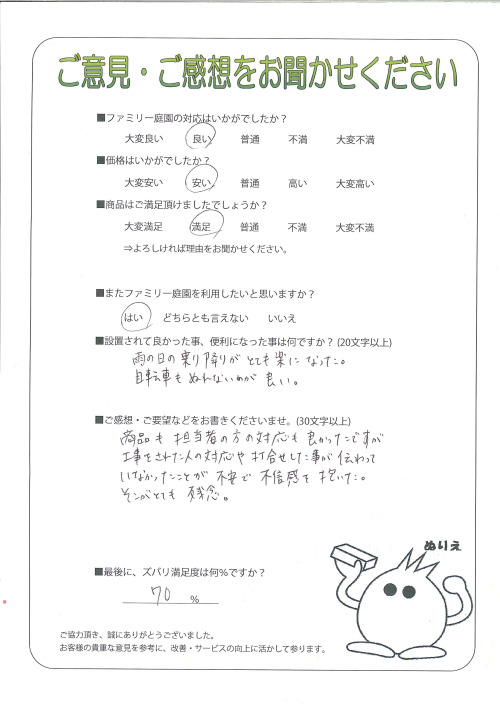 ご意見・ご感想をお聞かせください
■ファミリー庭園の対応はいかがでしたか？
大変良い 良い 普通 不満 大変不満
■価格はいかがでしたか？
大変安い 安い 普通 高い 大変高い
■商品はご満足頂けましたでしょうか？
大変満足 満足 普通 不満 大変不満
⇒よろしければ理由をお聞かせください。
■またファミリー庭園を利用したいと思いますか？
はい どちらとも言えない いいえ
■設置されて良かった事、便利になった事は何ですか？(20文字以上)
雨の日の乗り降りがとても楽になった。
自転車もぬれないのが良い。
■ご感想・ご要望などをお書きくださいませ。(30文字以上)
商品も担当者の方の対応も良かったですが
工事をされた人の対応や打合せした事が伝わって
いなかったことが不安で不信感を抱いた。
そこがとても残念。
ぬりえ
■最後に、ズバリ満足度は何%ですか？
70 %
ご協力頂き、誠にありがとうございました。
お客様の貴重な意見を参考に、改善・サービスの向上に活かして参ります。